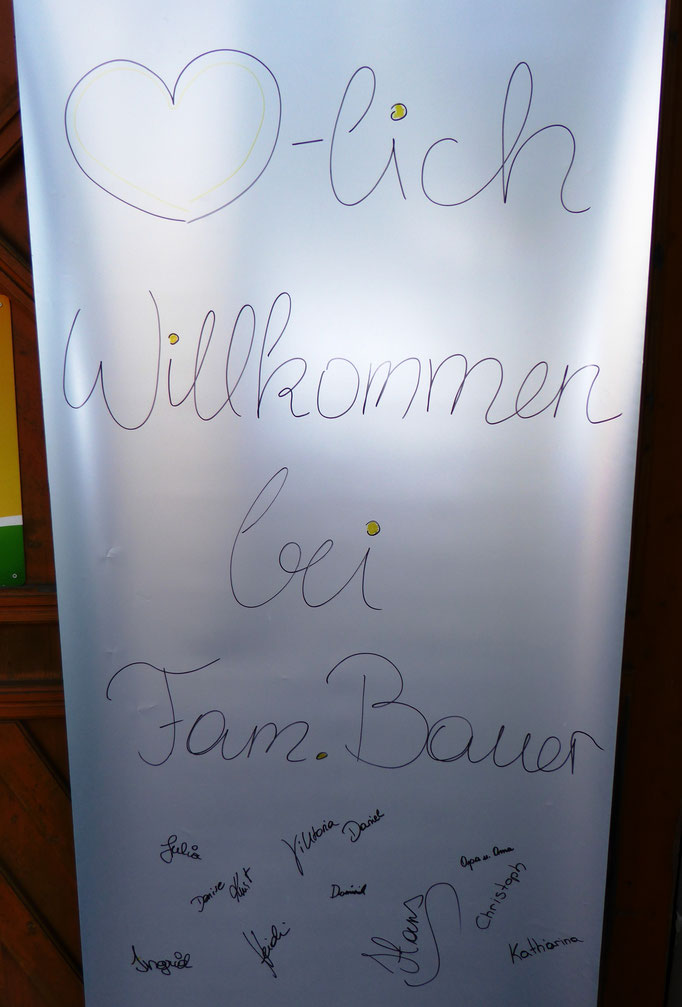 ♡-lich
Willkommen
bei
Fam. Bauer
Julia
Viktoria
Daniel
Opa u. Oma
Dominik
Christoph
Ingrid
Heidi
Hans
Katharina